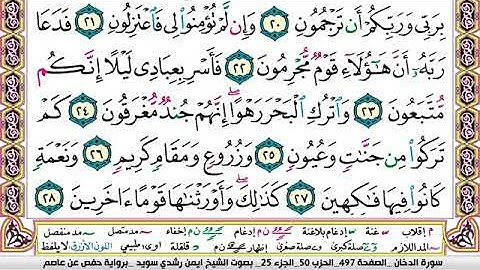 بِرَبِّي وَرَبِّكُمْ أَن تَرْجُمُونِ ٢٠ وَإِن لَّمْ تُؤْمِنُوا۟ لِي فَاعْتَزِلُونِ ٢١ فَدَعَا
رَبَّهُ أَنَّ هَـٰٓؤُلَآءِ قَوْمٌ مُّجْرِمُونَ ٢٢ فَأَسْرِ بِعِبَادِي لَيْلًا إِنَّكُم
مُّتَّبَعُونَ ٢٣ وَاتْرُكِ الْبَحْرَ رَهْوًا إِنَّهُمْ جُندٌ مُّغْرَقُونَ ٢٤ كَمْ
تَرَكُوا۟ مِن جَنَّـٰتٍ وَعُيُونٍ ٢٥ وَزُرُوعٍ وَمَقَامٍ كَرِيمٍ ٢٦ وَنَعْمَةٍ
كَانُوا۟ فِيهَا فَـٰكِهِينَ ٢٧ كَذَٰلِكَ وَأَوْرَثْنَـٰهَا قَوْمًا ءَاخَرِينَ ٢٨
م إقلاب غنة إدغام بلاغنة إدغام ن م إخفاء مد متصل مد منفصل
المد اللازم صلة كبرى صلة صغرى إظهار ن م قلقلة أوي طبيعي اللون الأزرق لا يلفظ
سورة الدخان _الصفحة 497_ الحزب 50_ الجزء 25_ بصوت الشيخ ايمن رشدي سويد _برواية حفص عن عاصم